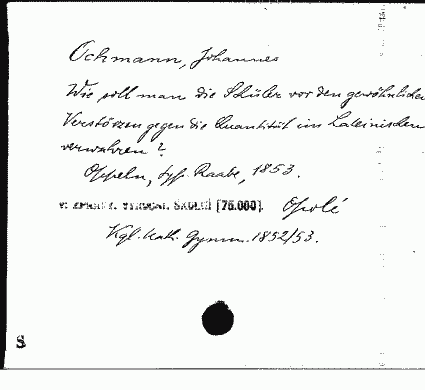 Ochmann, Johannes
Wie soll man die Schüler vor den gewöhnlichen
Verstössen gegen die Quantität im Lateinischen
verwahren?
Oppeln, typ. Raabe, 1853.
ŠKOLNÍ [75.000]. Opolí
Kgl. kath. Gymn. 1852/53.
S